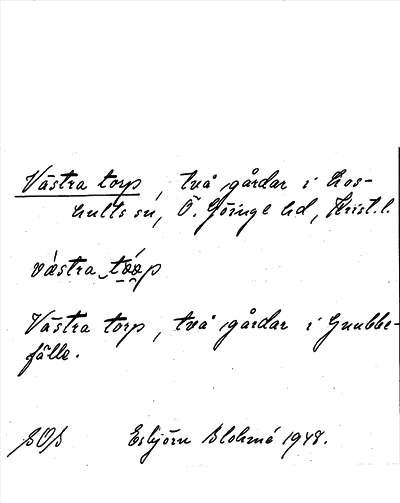 Västra torp, två gårdar i Los-
hults sn, Ö. Göinge hd, Krist.l.
västra
Västra torp, två gårdar i Gnubbe-
fälle.
SOS Esbjörn Blohmé 1948.